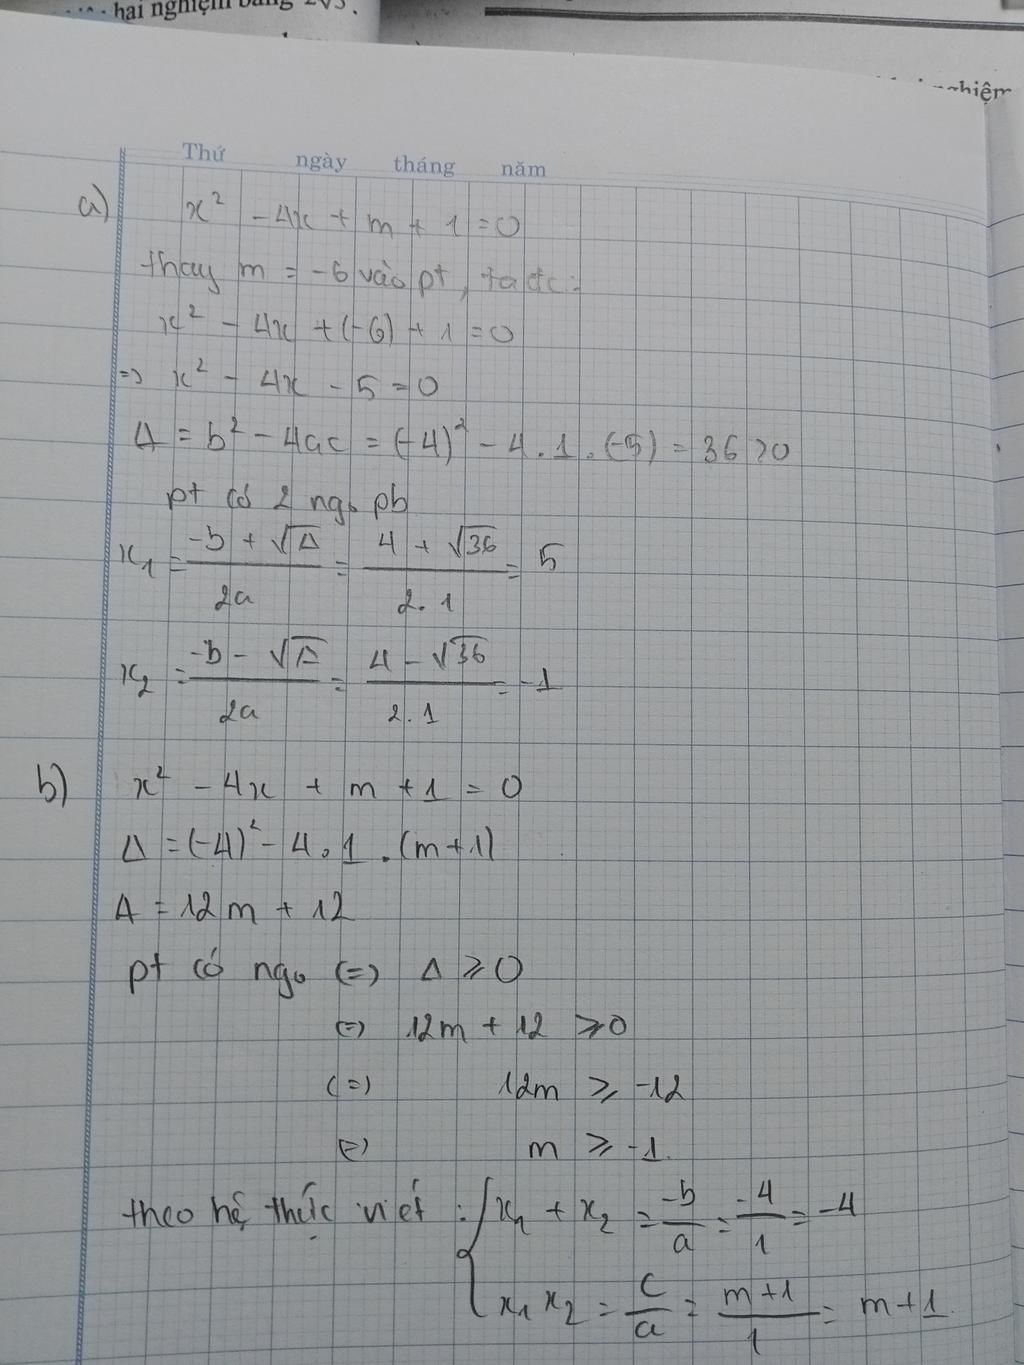 hai nghiệm bằng 2√3.
nghiệm
Thứ ngày tháng năm
a) x² - 4x + m + 1 = 0
thay m = -6 vào pt, ta đc:
x² - 4x + (-6) + 1 = 0
=> x² - 4x - 5 = 0
Δ = b² - 4ac = (-4)² - 4.1.(-5) = 36 > 0
pt có 2 ngo pb
x₁ = (-b + √Δ)/2a = (4 + √36)/2.1 = 5
x₂ = (-b - √Δ)/2a = (4 - √36)/2.1 = -1
b) x² - 4x + m + 1 = 0
Δ = (-4)² - 4.1.(m+1)
Δ = 12m + 12
pt có ngo (=) Δ ≥ 0
(=) 12m + 12 ≥ 0
(=) 12m ≥ -12
(=) m ≥ -1.
theo hệ thức viet : { x₁ + x₂ = -b/a = -4/1 = -4
x₁ x₂ = c/a = (m+1)/1 = m+1.